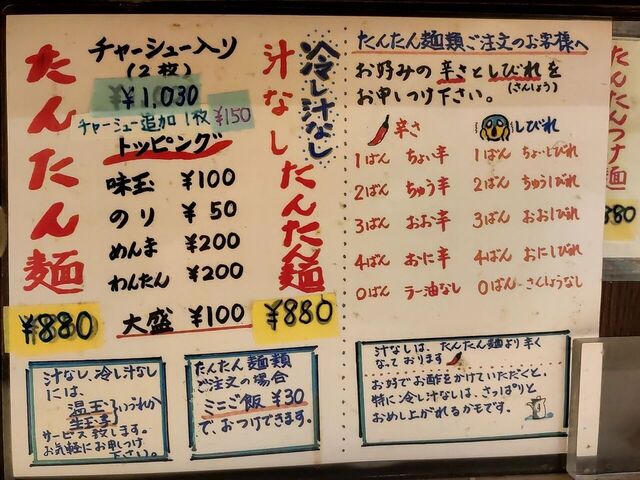 たんたん麺
¥880
チャーシュー入り
(2枚)
¥1,030
チャーシュー追加1枚 ¥150
トッピング
味玉 ¥100
のり ¥50
めんま ¥200
わんたん ¥200
大盛 ¥100
冷し汁なし
汁なしたんたん麺
¥880
汁なし、冷し汁なし
には、
温玉
生玉子
いづれか
サービス致します。
お気軽にお申しつけ
下さい。
たんたん麺類
ご注文の場合
ミニご飯 ¥30
で、おつけできます。
たんたん麺類ご注文のお客様へ
お好みの辛さとしびれを
(さんしょう)
お申しつけ下さい。
辛さ
1ばん ちょい辛
2ばん ちゅう辛
3ばん おお辛
4ばん おに辛
0ばん ラー油なし
しびれ
1ばん ちょいしびれ
2ばん ちゅうしびれ
3ばん おおしびれ
4ばん おにしびれ
0ばん さんしょうなし
汁なしは、たんたん麺より辛く
なっております
お好でお酢をかけていただくと、
特に冷し汁なしは、さっぱりと
おめし上がれるかもです。
たんたんつけ麺
880